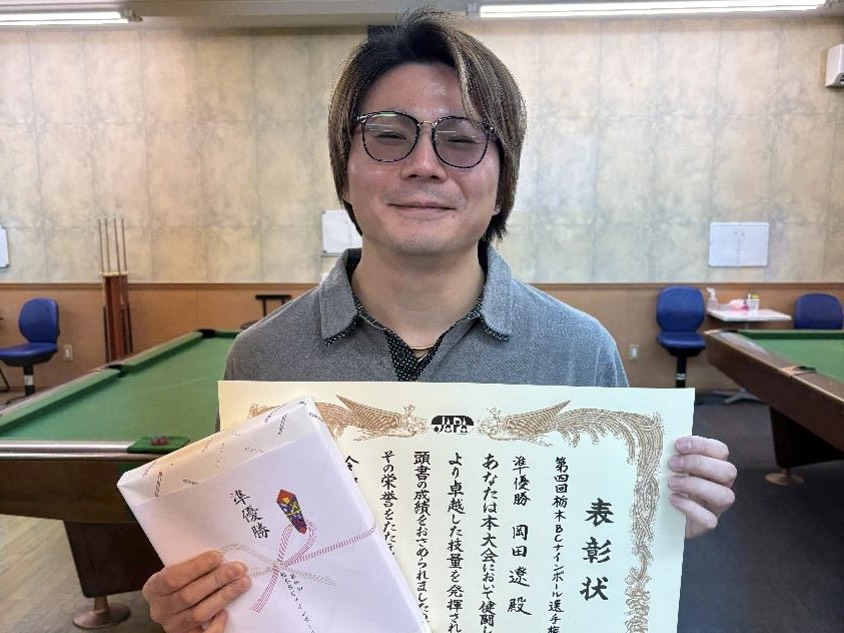 JAPA
表彰状
第四回栃木BCナインボール選手権
準優勝 岡田 遼 殿
あなたは本大会において健闘し
より卓越した技量を発揮され
頭書の成績をおさめられました
その栄誉をたた
準優勝